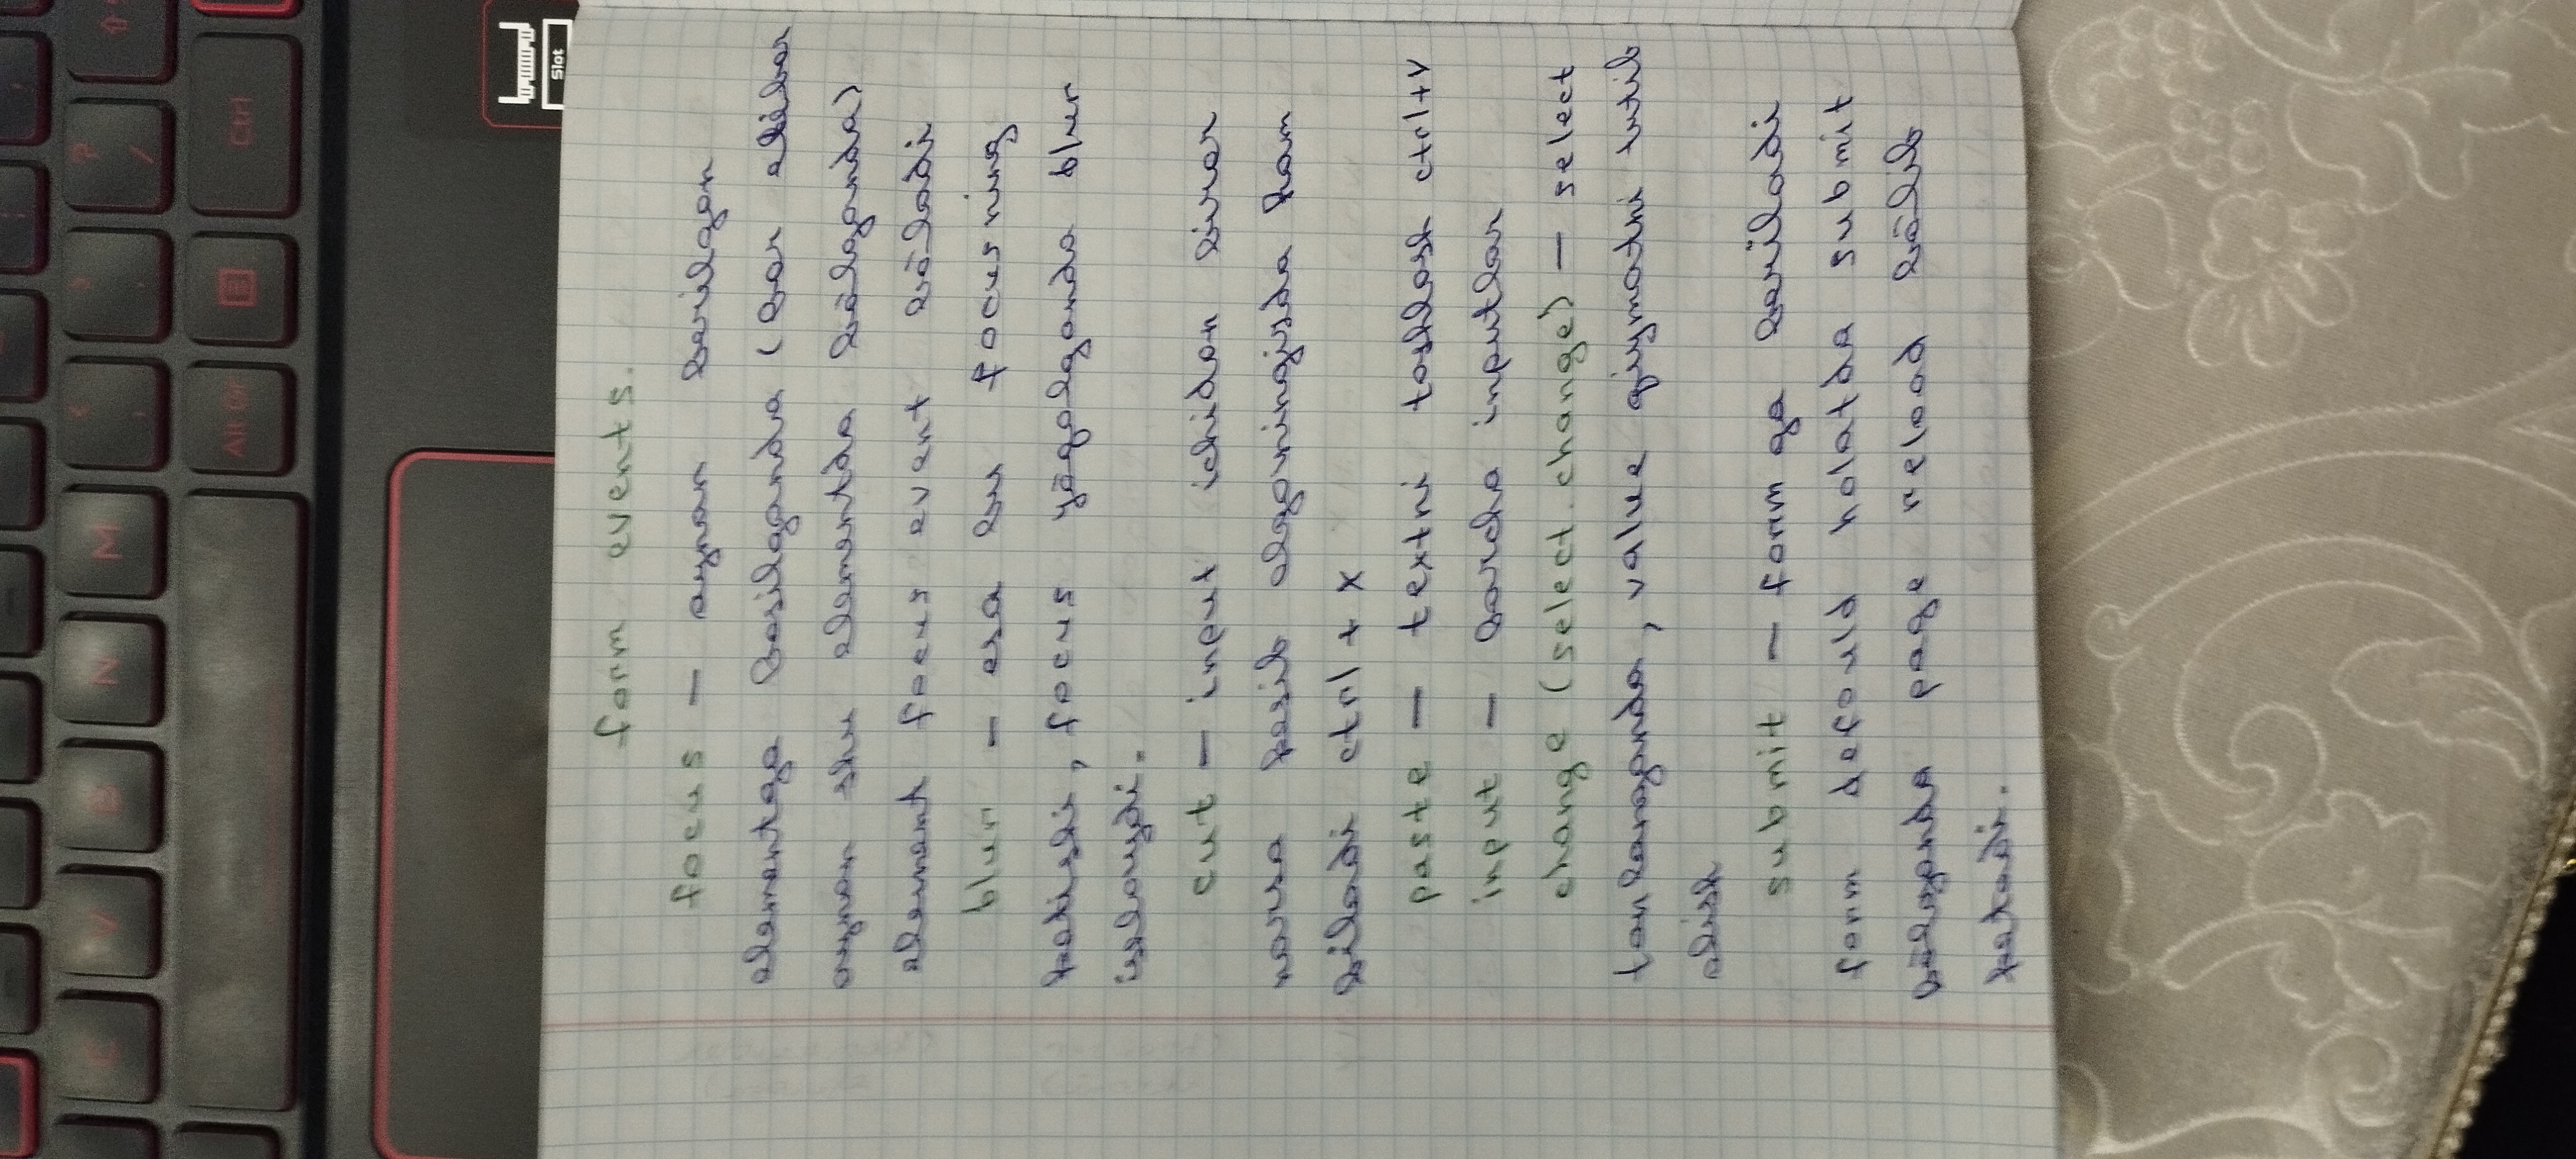 form events.
focus — aynan berilgan
elementga bosilganda (har elibor
aynan shu elementda bo'lganda)
element focus event bo'ladi
blur — esa bu focusning
teskarisi, focus yo'qolganda blur
ishlaydi.
cut — input ichidan biror
narsa kesib olganingizda ham
bo'ladi ctrl + x
paste — textni tashlash ctrl+v
input — barcha inputlar
change (select.change) — select
tanlanganda, value qiymatni tutib
olish
submit — form ga beriladi
form defould holatda submit
bo'lganda page reload bo'lib
ketadi.
Ctrl
Alt Gr
M
N
B
V
C
Slot